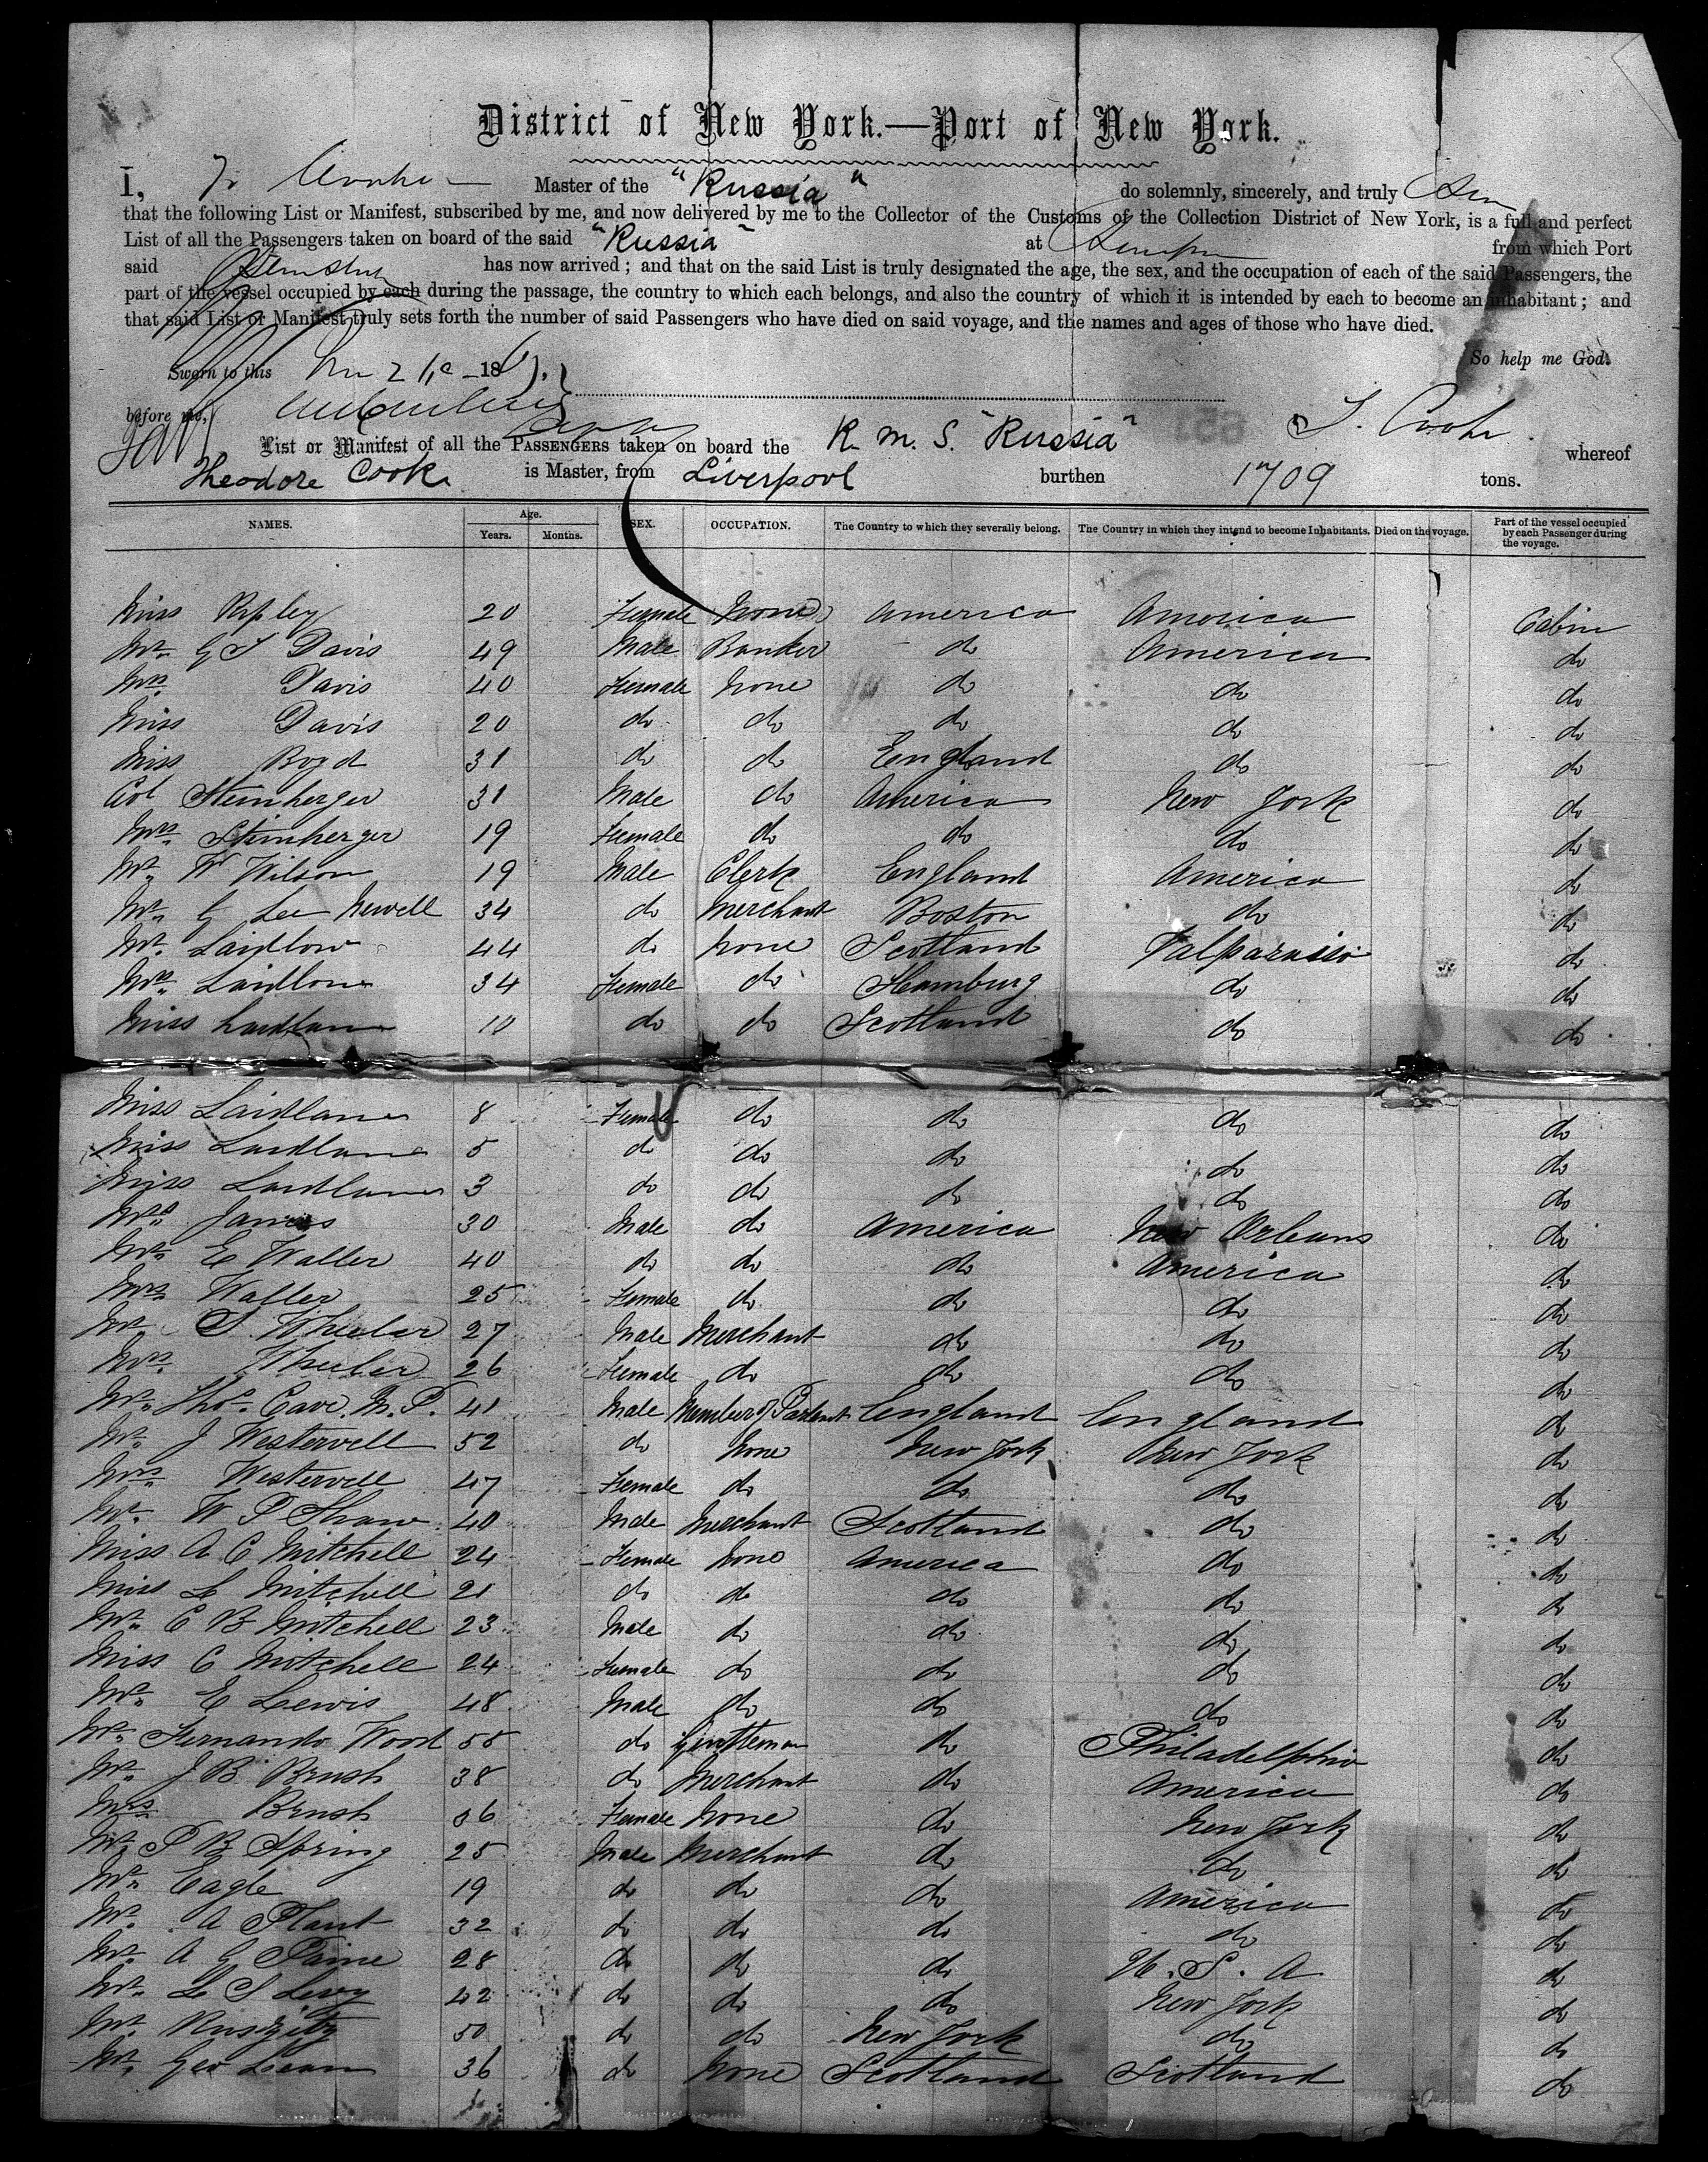 District of New York.—Port of New York.
I, Master of the "Russia" do solemnly, sincerely, and truly
that the following List or Manifest, subscribed by me, and now delivered by me to the Collector of the Customs of the Collection District of New York, is a full and perfect
List of all the Passengers taken on board of the said "Russia" at from which Port
said has now arrived; and that on the said List is truly designated the age, the sex, and the occupation of each of the said Passengers, the
part of the vessel occupied by each during the passage, the country to which each belongs, and also the country of which it is intended by each to become an inhabitant; and
that said List or Manifest truly sets forth the number of said Passengers who have died on said voyage, and the names and ages of those who have died.
So help me God.
Sworn to this 186
before me,
T. Cook
List or Manifest of all the PASSENGERS taken on board the R. M. S. "Russia" whereof
Theodore Cook is Master, from Liverpool burthen 1709 tons.
NAMES. Age. Years. Months. SEX. OCCUPATION. The Country to which they severally belong. The Country in which they intend to become Inhabitants. Died on the voyage. Part of the vessel occupied by each Passenger during the voyage.
Miss Ripley 20 Female None America America Cabin
Mr. G T Davis 49 Male Banker do America do
Mrs. Davis 40 Female None do do do
Miss Davis 20 do do do do do
Miss Boyd 31 do do England do do
Col Steinberger 31 Male do America New York do
Mrs. Steinberger 19 Female do do do do
Mr. W Wilson 19 Male Clerk England America do
Mr. G Lee Newell 34 do Merchant Boston do do
Mr. Laidlow 44 do None Scotland Valparasio do
Mrs. Laidlow 34 Female do Hamburg do do
Miss Laidlaw 10 do do Scotland do do
Miss Laidlaw 8 Female do do do do
Miss Laidlaw 5 do do do do do
Miss Laidlaw 3 do do do do do
Mr. James 30 Male do America New Orleans do
Mr. E Waller 40 do do do America do
Mrs. Waller 25 Female do do do do
Mr. S. Wheeler 27 Male Merchant do do do
Mrs. Wheeler 26 Female do do do do
Mr. Thos. Cave. M. P. 41 Male Member of Parlemt England England do
Mr. J Westervell 52 do None New York New York do
Mrs. Westervell 47 Female do do do do
Mr. W P Shaw 40 Male Merchant Scotland do do
Miss A C Mitchell 24 Female None America do do
Miss L Mitchell 21 do do do do do
Mr. C B Mitchell 23 Male do do do do
Miss C Mitchell 24 Female do do do do
Mr. E Lewis 48 Male do do do do
Mr. Fernando Wood 55 do Gentleman do Philadelphia do
Mr. J B Brush 38 do Merchant do America do
Mrs. Brush 36 Female None do New York do
Mr. P B Spring 25 Male Merchant do do do
Mr. Eagle 19 do do do America do
Mr. A Plant 32 do do do do do
Mr. A G Paine 28 do do do U. S. A do
Mr. L S Levy 42 do do do New York do
Mr. 50 do do New York do do
Mr. Geo 36 do None Scotland Scotland do